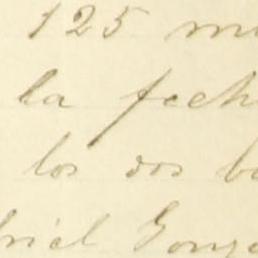 125 m
la fech
los dos b
briel Gonza